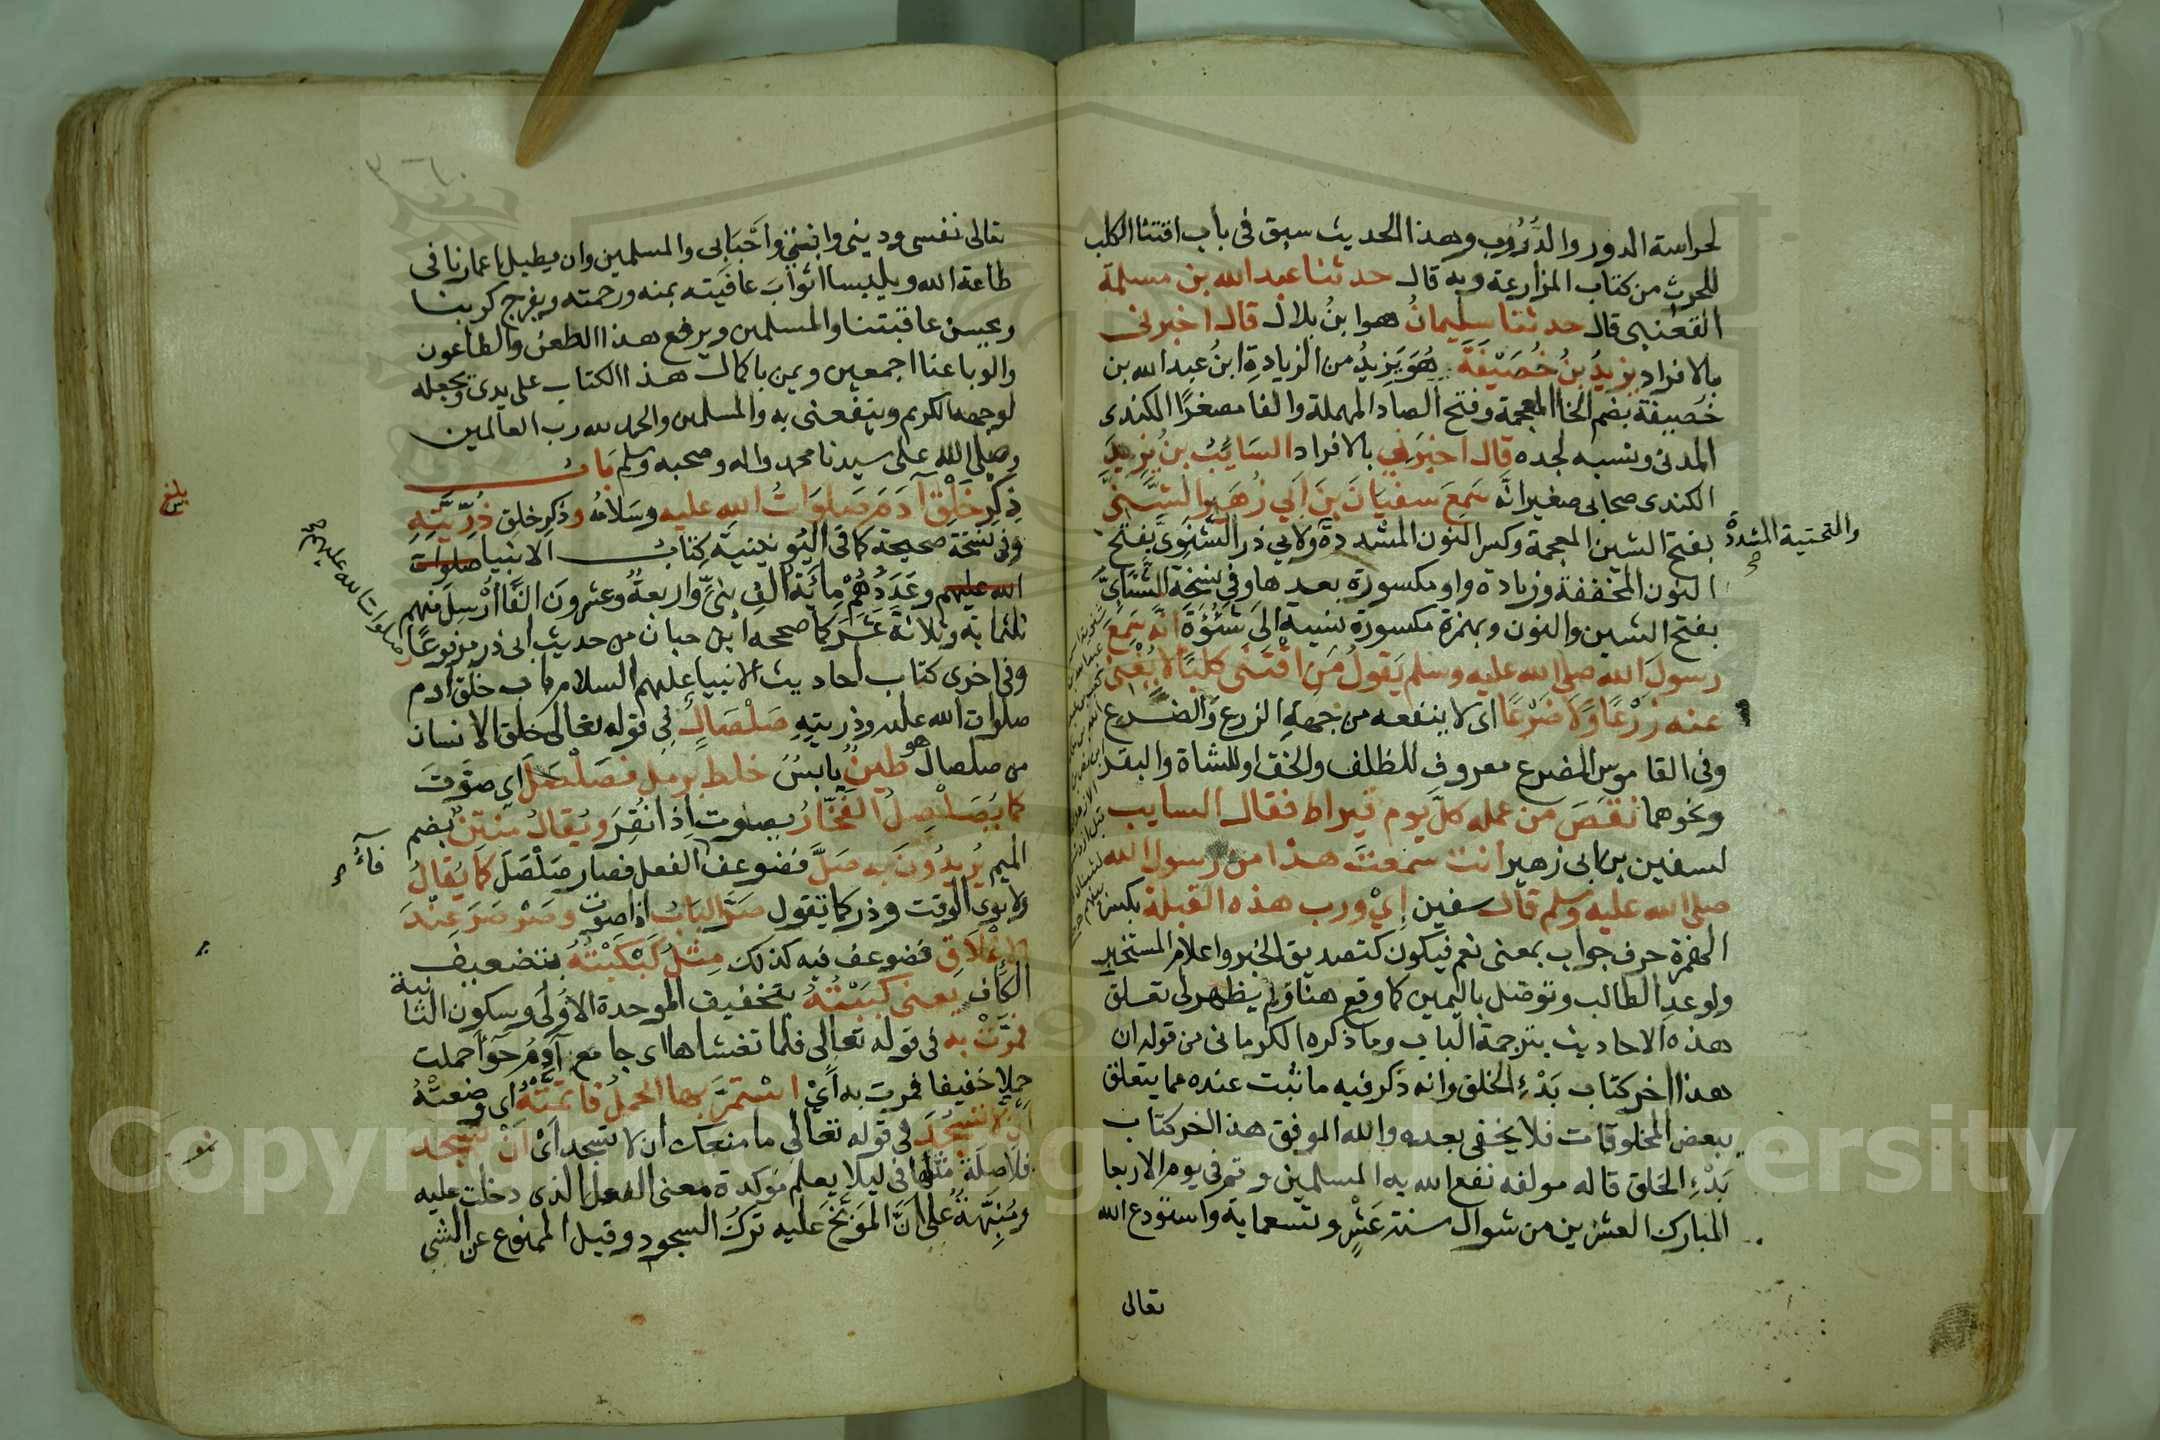 لحراسة الدور والدُّرُوب وهذا الحديث سبق في باب اقتناا الكلب
للحرث من كتاب المزارعة وبه قال حدثنا عبد الله بن مسلمة
القعنبي قال حدثنا سليمانُ هوا بنُ بلال قال اخبرني
بالافراد يزيدُ بنُ خُصَيْفَةَ هُوَ يَزِيدُ من الزيادةِ ابنُ عبد الله بن
خُصيفة بضم الخا المعجمة وفتح الصاد المهملة والفا مصغرًا الكندى
المدني ونسبه لجده قال اخبرَنِي بالافراد السَايِبُ بن يَزيدَ
الكندى صحابي صغير انَّه سَمِعَ سفيَانَ بنَ اَبي زُهَير الشَّنِيَّ
بفتح الشين المعجمة وكسر النون المشددة ولابي ذر الشَّنَوِيَّ بفتح
والتحتية المشددة
النون المخففة وزيادة واو مكسورة بعدها وفي نسخة الشَّنَائِيَّ
بفتح الشين والنون وبهمزة مكسورة نسبة الَى شَنُوءَةَ انَّه سَمِعَ
رسولَ الله صلى الله عليه وسلم يَقولُ مَنِ اقْتَنَى كلبًا لا يُغْنى
عنه زَرْعًا وَلَا ضَرْعًا اى لا ينفعه من جهةِ الزرع وَالضرع
وفي القاموس الضرع معروف للظلف والخف او للشاة والبقر
ونحوهما نقصَ من عمله كلَّ يوم قيراط فقال السايب
لسفين بن ابي زهير انت سَمعتَ هذا من رسول الله
صلى الله عليه وسلم قال سفين اِيْ ورب هذه القبلة بكسر
الهمزة حرف جواب بمعنى نعم فيكون كتصديق الخبر واعلام المستخبر
ولوعدِ الطالب وتوصل باليمين كما وقع هنا ولم يظهر لى تعلق
هذه الاحاديث بترجمة الباب وما ذكره الكرماني من قوله ان
هذا اخر كتاب بَدْءِ الخلق وانه ذكر فيه ما ثبت عنده مما يتعلق
ببعض المخلوقات فلا يخفى بعده والله الموفق هذ الخر كتاب
بَدْءِ الخَلق قاله مولفه نفع الله به المسلمين وتم في يوم الاربعا
المبارك العشرين من شوال سنة عَشْرٍ وتسعماية واستودع الله
تعالى
تعالى نفسى ودينى وابنَيَّ واَحْبَابى والمسلمين وان يطيل اعمارنا في
طاعة الله ويلبسا اثوابَ عافيَته بمنه ورحمته ويفرج كربنا
ويحسن عاقبتنا والمسلمين ويرفع هذا الطعن والطاعون
والوبا عنا اجمعين ويمن باكمال هذا الكتاب على يدى ويجعله
لوجهه الكريم وينفعنى به والمسلمين والحمد لله رب العالمين
وصلى الله على سيدنا محمد واله وصحبه وسلم بَابُ
ذِكرِ خَلْقِ آدَمَ صَلوَاتُ الله عليه وسَلَامُه وذكرِ خلقِ ذُرِّيَّتِهِ
بلغ
وفي نسخة صحيحة كما في اليُونينيَّة كِتَابُ الانبيا صلوات
الله عليهم وعَدَدُهُمْ مِائَة الفِ نبيٍّ واربعَةٌ وعشرونَ الفًا اُرْسِلَ منهم
صلوات الله عليهم صح
ثلثمايَة وثلاثَة عَشَرَ كما صححه ابن حبان من حديث ابي ذر مرفوعًا
وفي اخرى كتاب احاديث الانبيا عليهم السلام باب خلق ادم
صلوات الله عليه وذريتِهِ صَلْصَالٍ فِي قوله تعَالى خلق الانسان
من صلصال هو طينٌ يابِسٌ خلط برمل فصَلْصَلَ اي صَوَّتَ
كما يُصَلْصِلُ الفَخَّارُ يصوت اذا نُقِرَ ويُقالُ مُنتِنٌ بضم
الميم يُرِيدُونَ بهِ صَلَّ فضوعف الفعل فصار صَلْصَلَ كَمَا يُقالُ
فاءُ
ولابوى الوقت وذر كما تقول صَرَّ البَابُ اذا صوت وصَرْصَرَ عِنْدَ
الاِغْلَاقِ فضوعف فيه كذلك مِثلُ كَبْكَبْتُهُ بتضعيف
الكاف يعنى كَبَبْتُهُ بتخفيف الموحدة الاُولَى وسكون الثانية
فمرَّتْ به في قوله تعالى فلما تغشاها اى جامع آدَمُ حوآ حملت
حملا خفيفا فمرت به اَيْ استمرَّ بها الحمْلُ فاَتمَّتْهُ اى وضعتْهُ
اَنْ لا تسْجُدَ في قوله تعالى ما منعك ان لا تسجد اَيْ اَنْ تسْجدَ
فلا صِلَةٌ مثلُها في ليلا يعلم مؤكدة معنى الفعل الذى دخلت عليه
ومُنَبِّهَةٌ على انَّ المُوَبَّخَ عليه تركُ السجود وقيل الممنوع عن الشى
Copyright © King Saud University